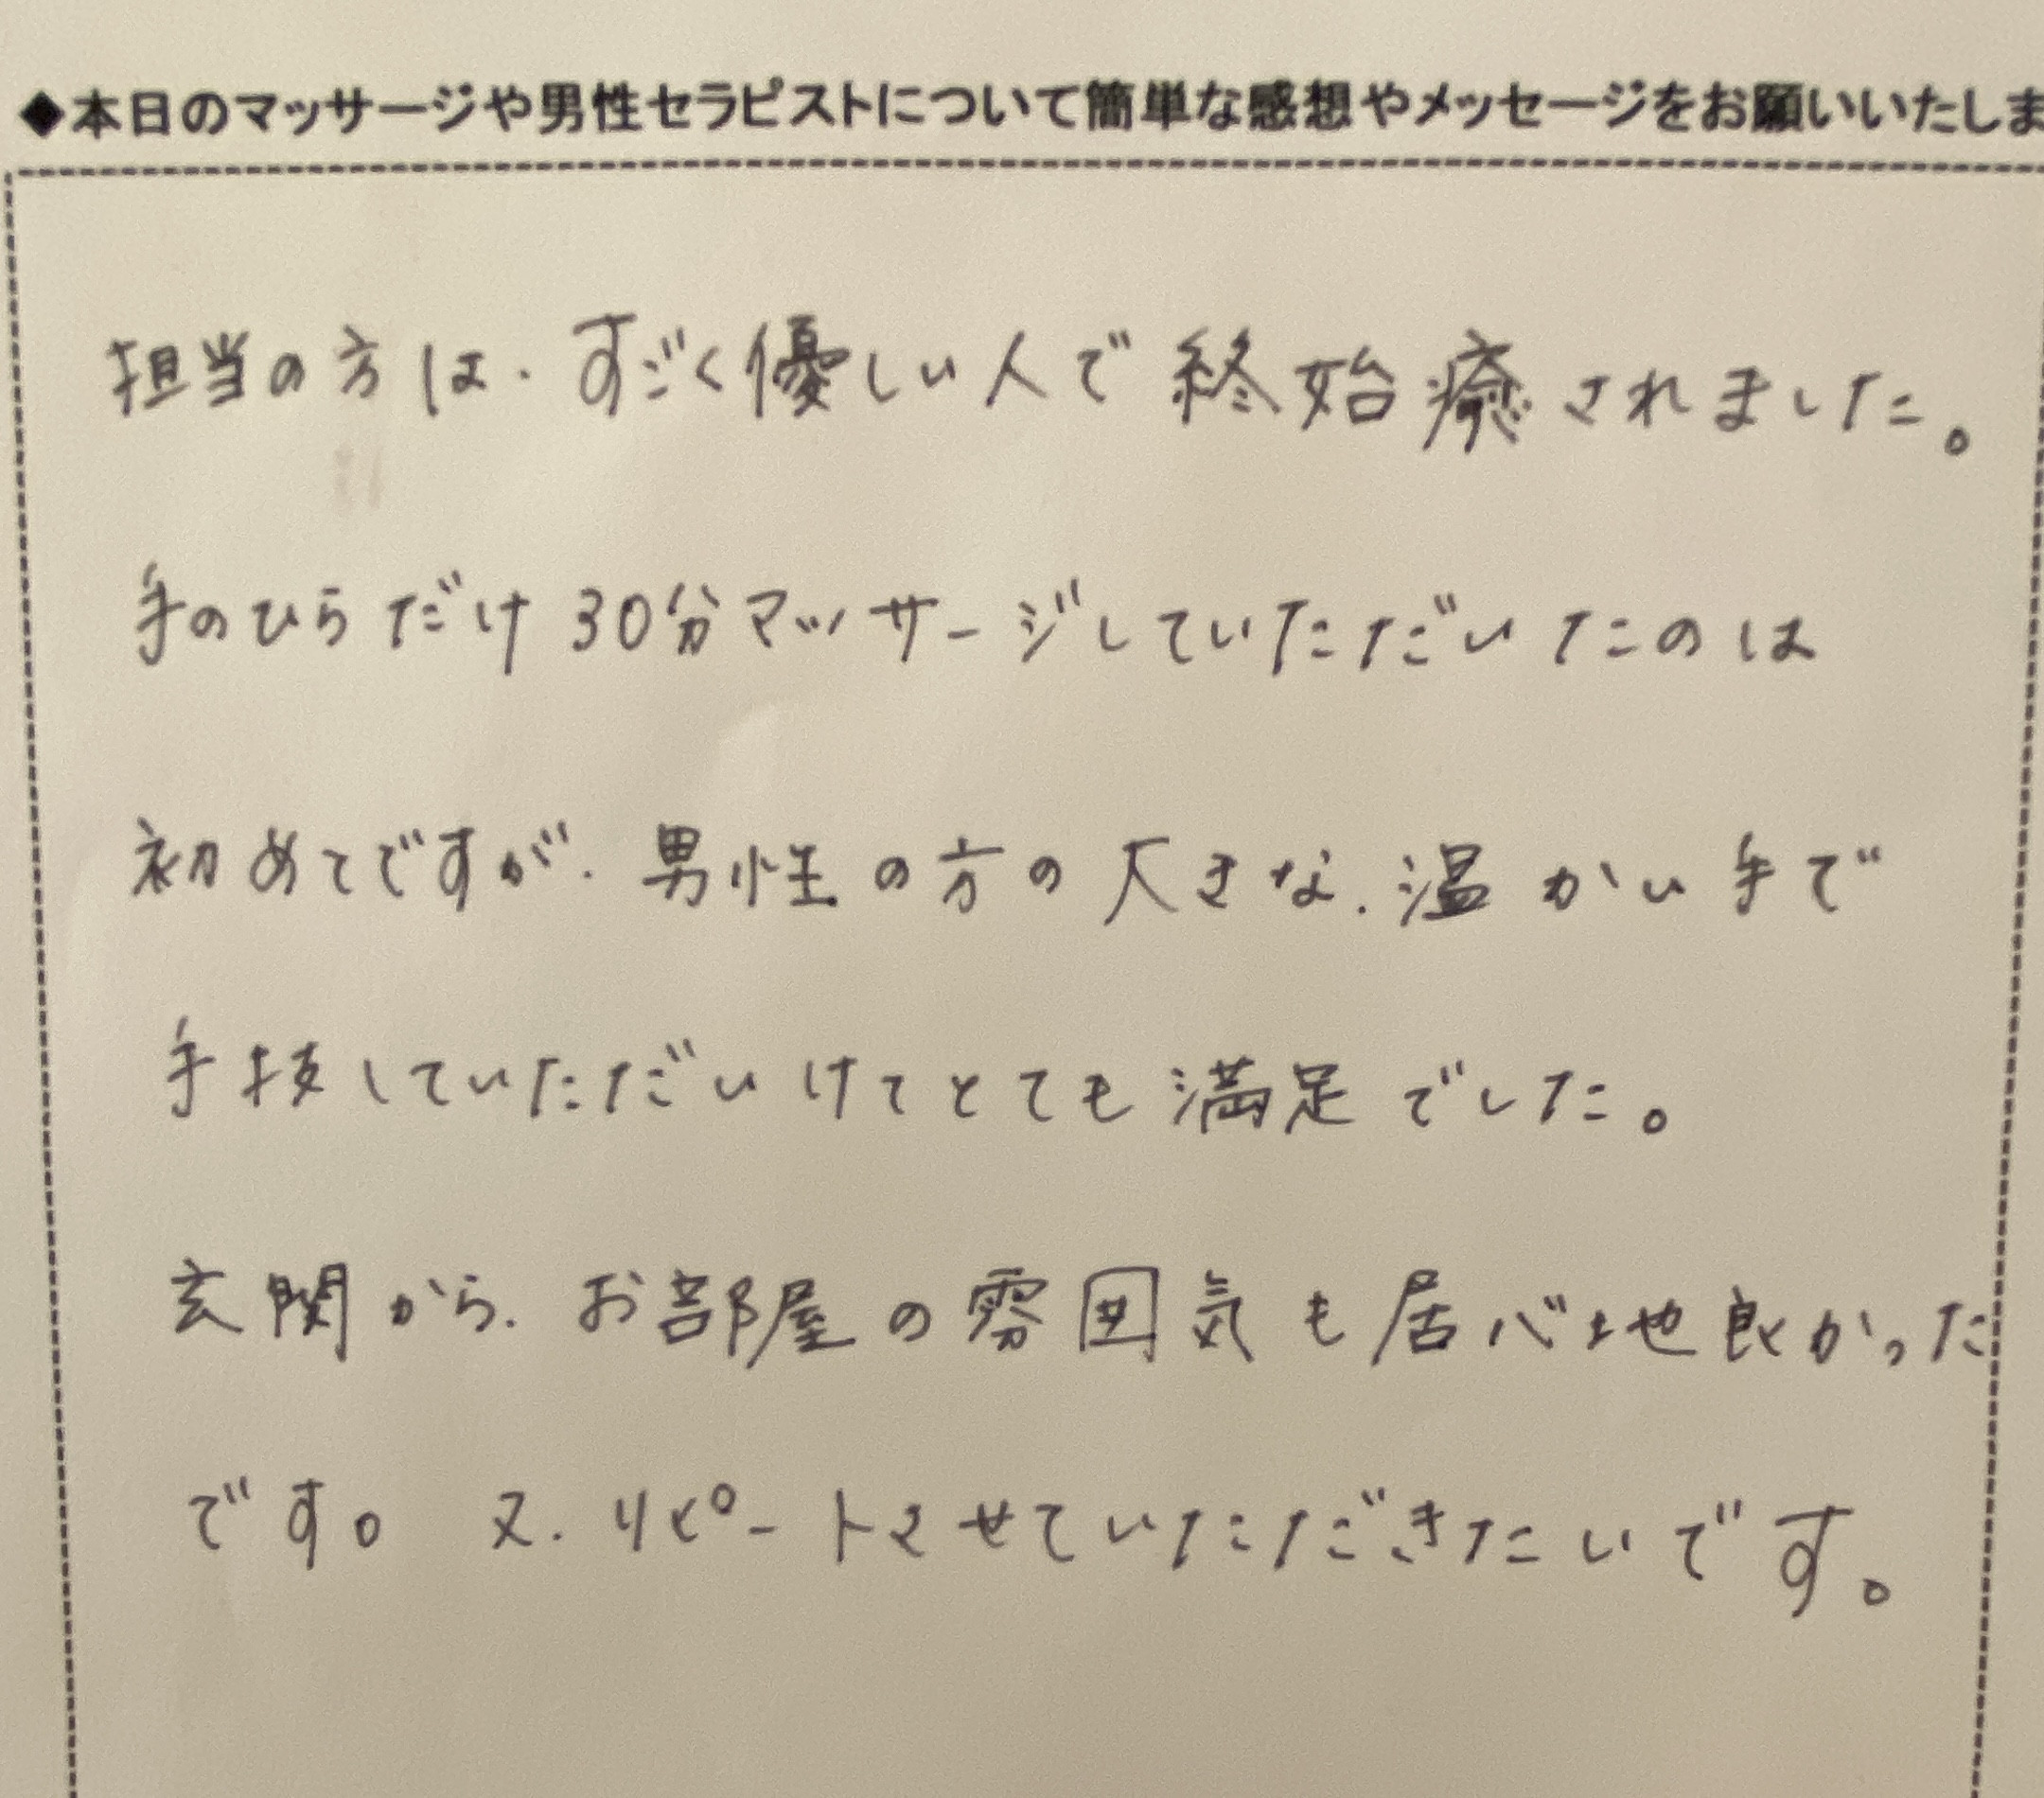 ◆本日のマッサージや男性セラピストについて簡単な感想やメッセージをお願いいたしま
担当の方は、すごく優しい人で終始癒されました。
手のひらだけ30分マッサージしていただいたのは
初めてですが、男性の方の大きな、温かい手で
手技していただいけてとても満足でした。
玄関から、お部屋の雰囲気も居心地良かった
です。又、リピートさせていただきたいです。